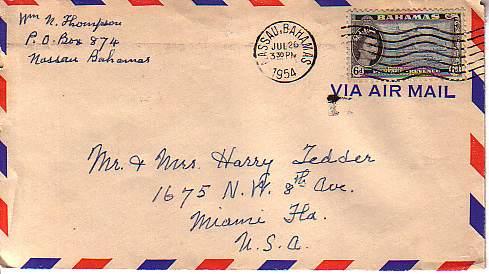 Wm N. Thompson
P.O. Box 874
Nassau Bahamas
NASSAU, BAHAMAS
JUL 26
3 30 PM
1954
BAHAMAS
6d
VIA AIR MAIL
Mr. & Mrs. Harry Tedder
1675 N.W. 8th Ave.
Miami Fla.
U.S.A.